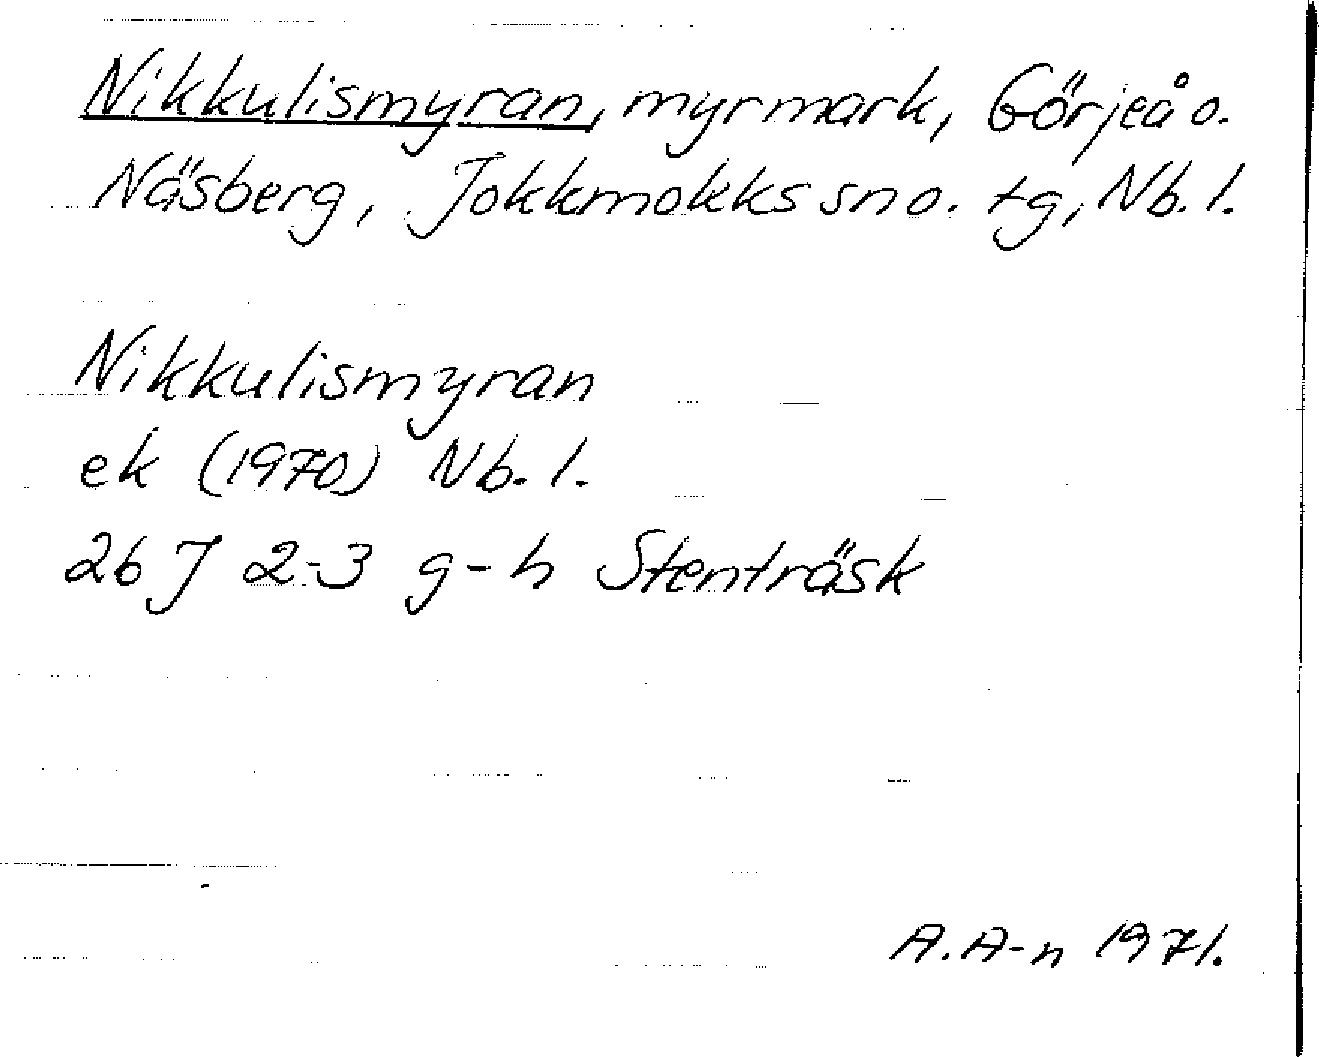 Nikkulismyran, myrmark, Görjeå o.
Näsberg, Jokkmokks sn o. tg, Nb. l.
Nikkulismyran
ek (1970) Nb. l.
26 J 2-3 g-h Stenträsk
A. A-n 1971.